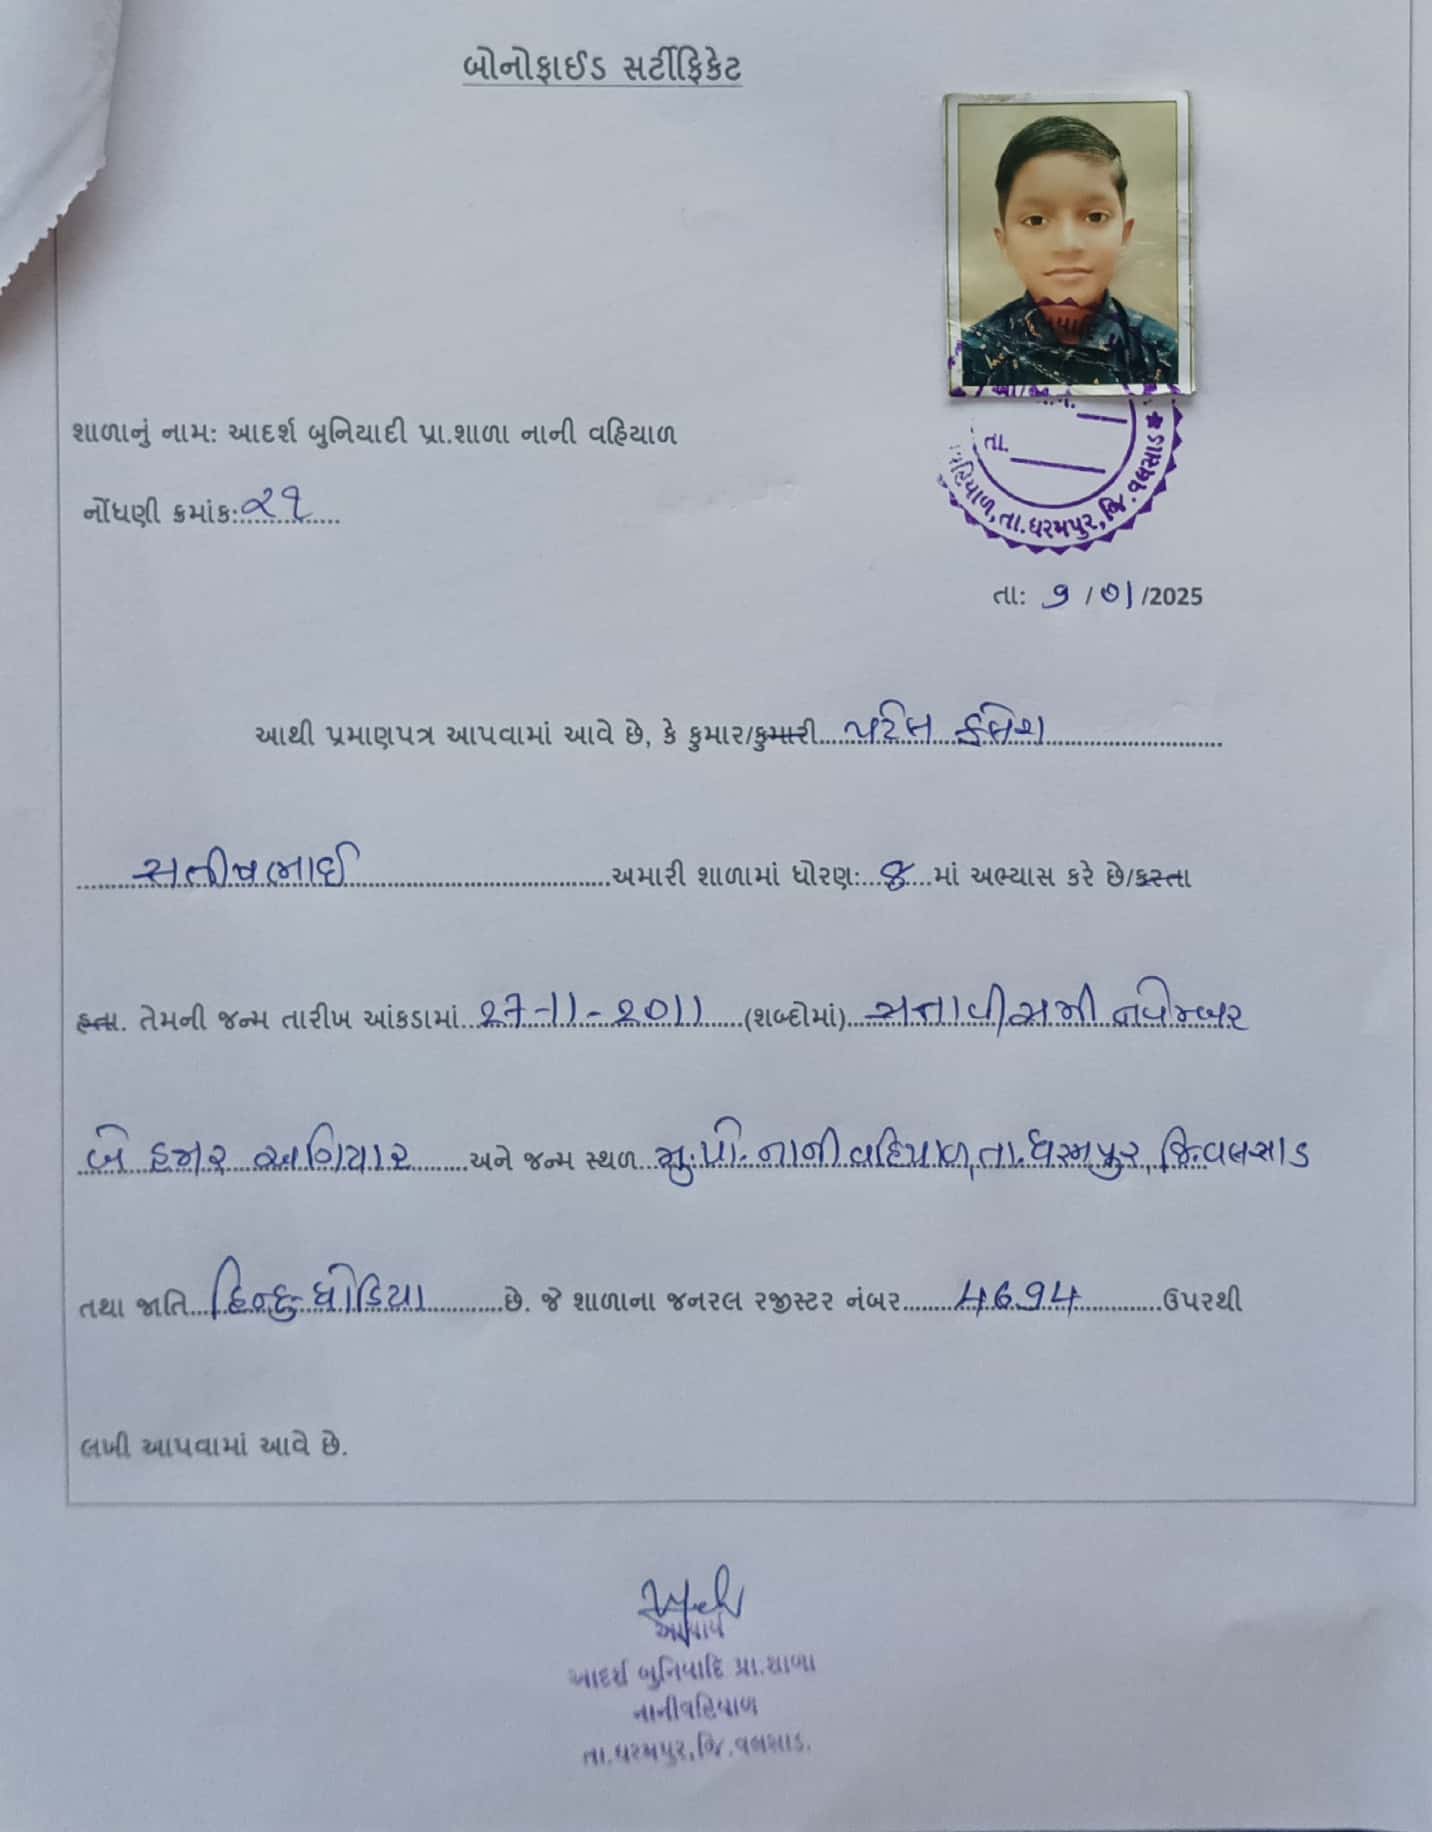 બોનોફાઈડ સર્ટીફિકેટ
શાળાનું નામ: આદર્શ બુનિયાદી પ્રા.શાળા નાની વહિયાળ
નોંધણી ક્રમાંક: ૨૧
તા.
વહિયાળ, તા.ધરમપુર, જિ.વલસાડ
તા: ૭ / ૦૧ /2025
આથી પ્રમાણપત્ર આપવામાં આવે છે, કે કુમાર/કુમારી પટેલ
સતીષભાઈ અમારી શાળામાં ધોરણ: ૪ માં અભ્યાસ કરે છે/કરતા
હતા. તેમની જન્મ તારીખ આંકડામાં ૨૭-11-૨૦11 (શબ્દોમાં) સત્તાવીસમી નવેમ્બર
બે હજાર અગિયાર અને જન્મ સ્થળ મુ.પો. નાની વહિયાળ, તા.ધરમપુર, જિ.વલસાડ
તથા જાતિ હિન્દુ-ધોડિયા છે. જે શાળાના જનરલ રજીસ્ટર નંબર ઉપરથી
લખી આપવામાં આવે છે.
આચાર્ય
આદર્શ બુનિયાદિ પ્રા.શાળા
નાનીવહિયાળ
તા.ધરમપુર,જિ.વલસાડ.